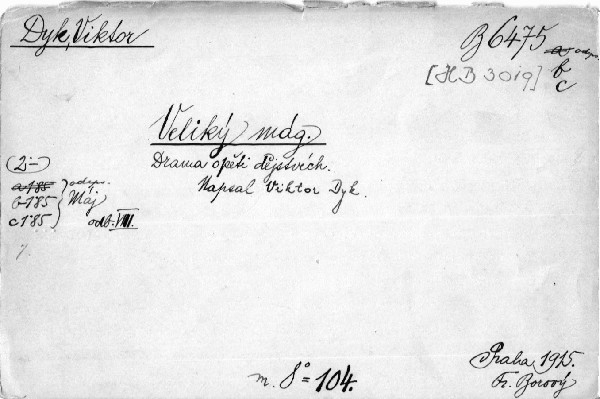 Dyk, Viktor
B 6475 a odep.
b
c
[HB 3019]
Veliký mág.
Drama o pěti dějstvích.
Napsal Viktor Dyk.
(2-)
a 185 } odep.
b 185 } Máj
c 185 } odb. VIII.
m. 8° = 104.
Praha, 1915.
Fr. Borový